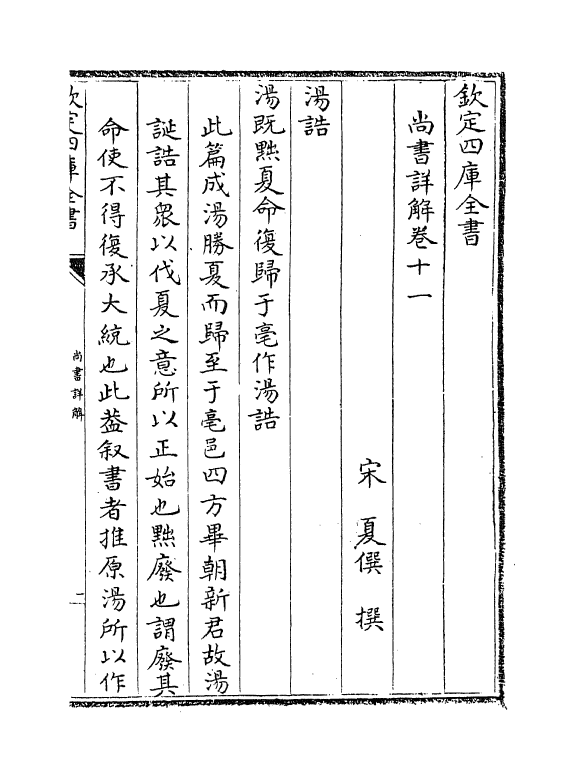 欽定四庫全書
尚書詳解卷十一
宋　夏僎　撰
湯誥
湯既黜夏命復歸于亳作湯誥
此篇成湯勝夏而歸至于亳邑四方畢朝新君故湯
誕誥其衆以伐夏之意所以正始也黜廢也謂廢其
命使不得復承大統也此葢叙書者推原湯所以作
欽定四庫全書
尚書詳解